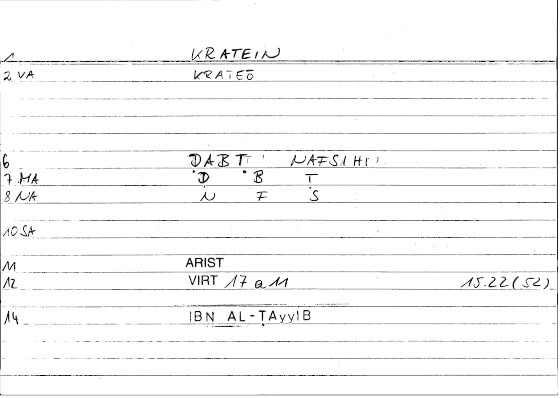 1 KRATEIN
2 VA KRATEŌ
6 ḌABṬ NAFSIHI
7 MA Ḍ B Ṭ
8 NA N F S
10 SA
11 ARIST
12 VIRT 17 a 11 15.22 (52)
14 IBN AL-ṬAyyIB